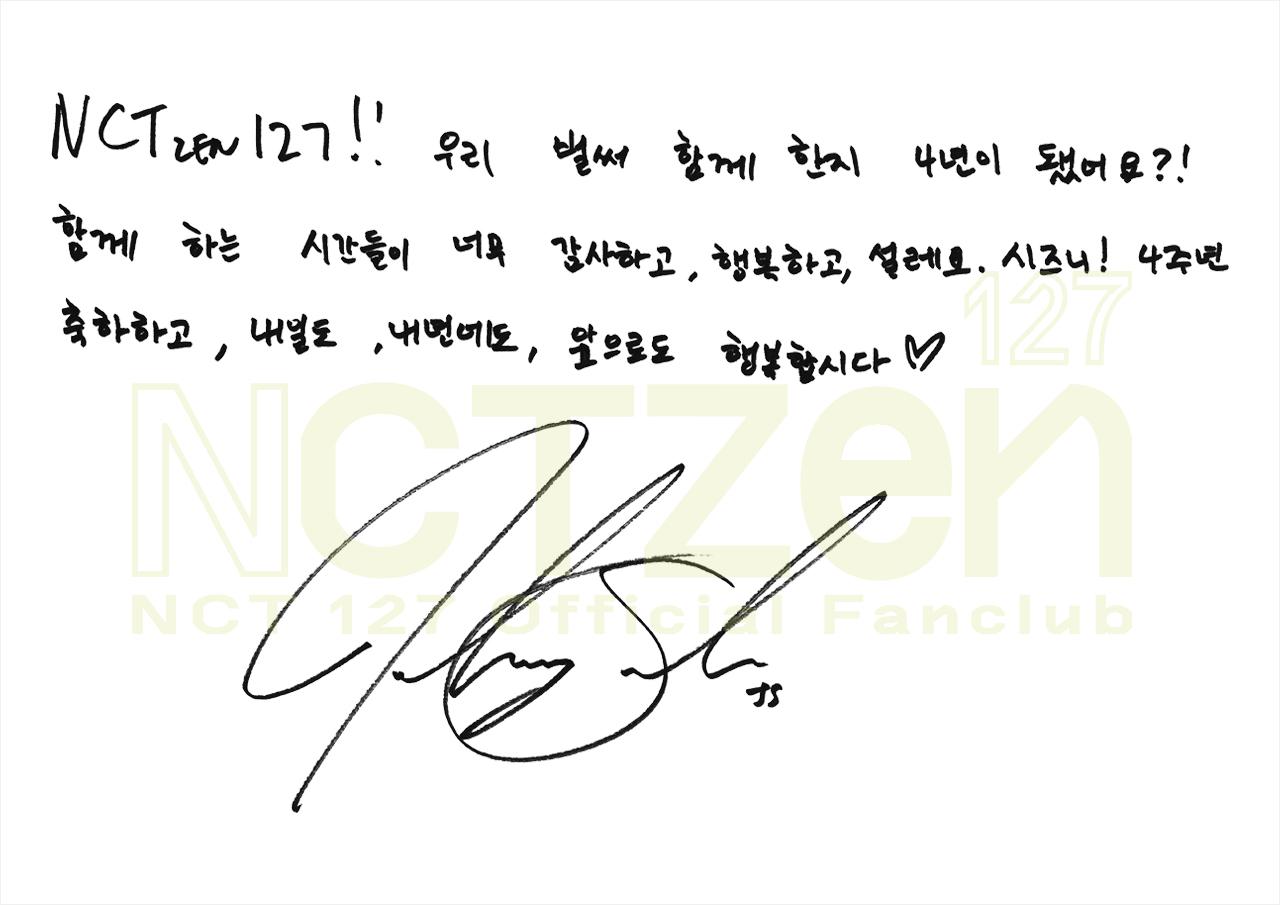 NCTZEN 127!! 우리 벌써 함께 한지 4년이 됐어요?!
함께 하는 시간들이 너무 감사하고, 행복하고, 설레요. 시즈니! 4주년
축하하고, 내일도, 내년에도, 앞으로도 행복합시다♡
127
NCTZEN
NCT 127 Official Fanclub
JS